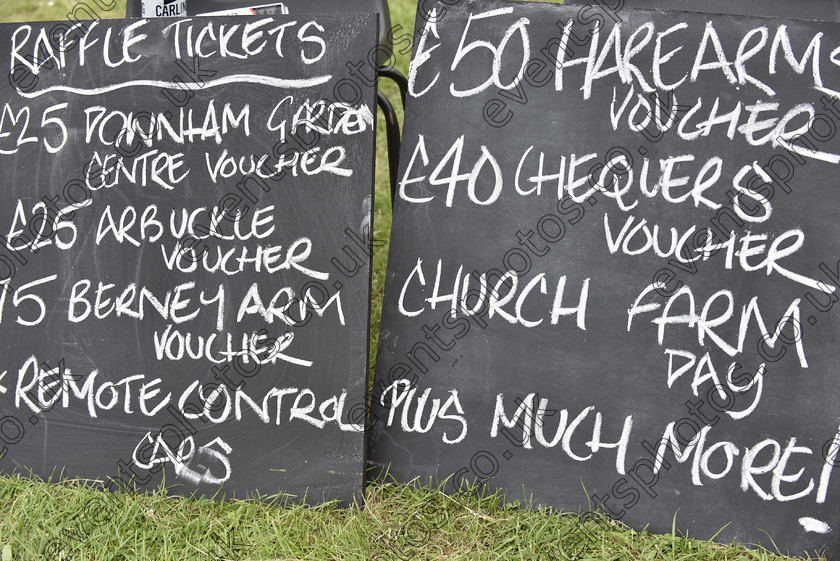 CARLIN
RAFFLE TICKETS
£25 DOWNHAM GARDEN
CENTRE VOUCHER
£25 ARBUCKLE
VOUCHER
75 BERNEY ARM
VOUCHER
REMOTE CONTROL
CARS
£50 HARE ARMS
VOUCHER
£40 CHEQUERS
VOUCHER
CHURCH FARM
DAY
PLUS MUCH MORE!
eventsphotos.co.uk